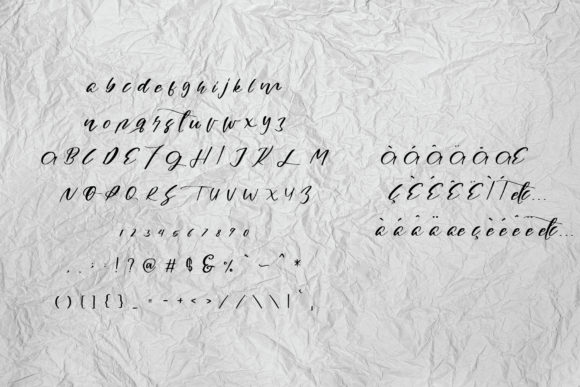 a b c d e f g h i j k l m
n o p q r s t u v w x y z
A B C D E F G H I J K L M
N O P Q R S T U V W X Y Z
1 2 3 4 5 6 7 8 9 0
. , : ; ! ? @ # $ & % ` ~ ^ *
( ) [ ] { } _ = - + < > / / \ \ |
À Á Â Ä Å Æ
Ç È É Ê Ë Ì Í etc...
à á â ä æ ç è é ê ë etc...